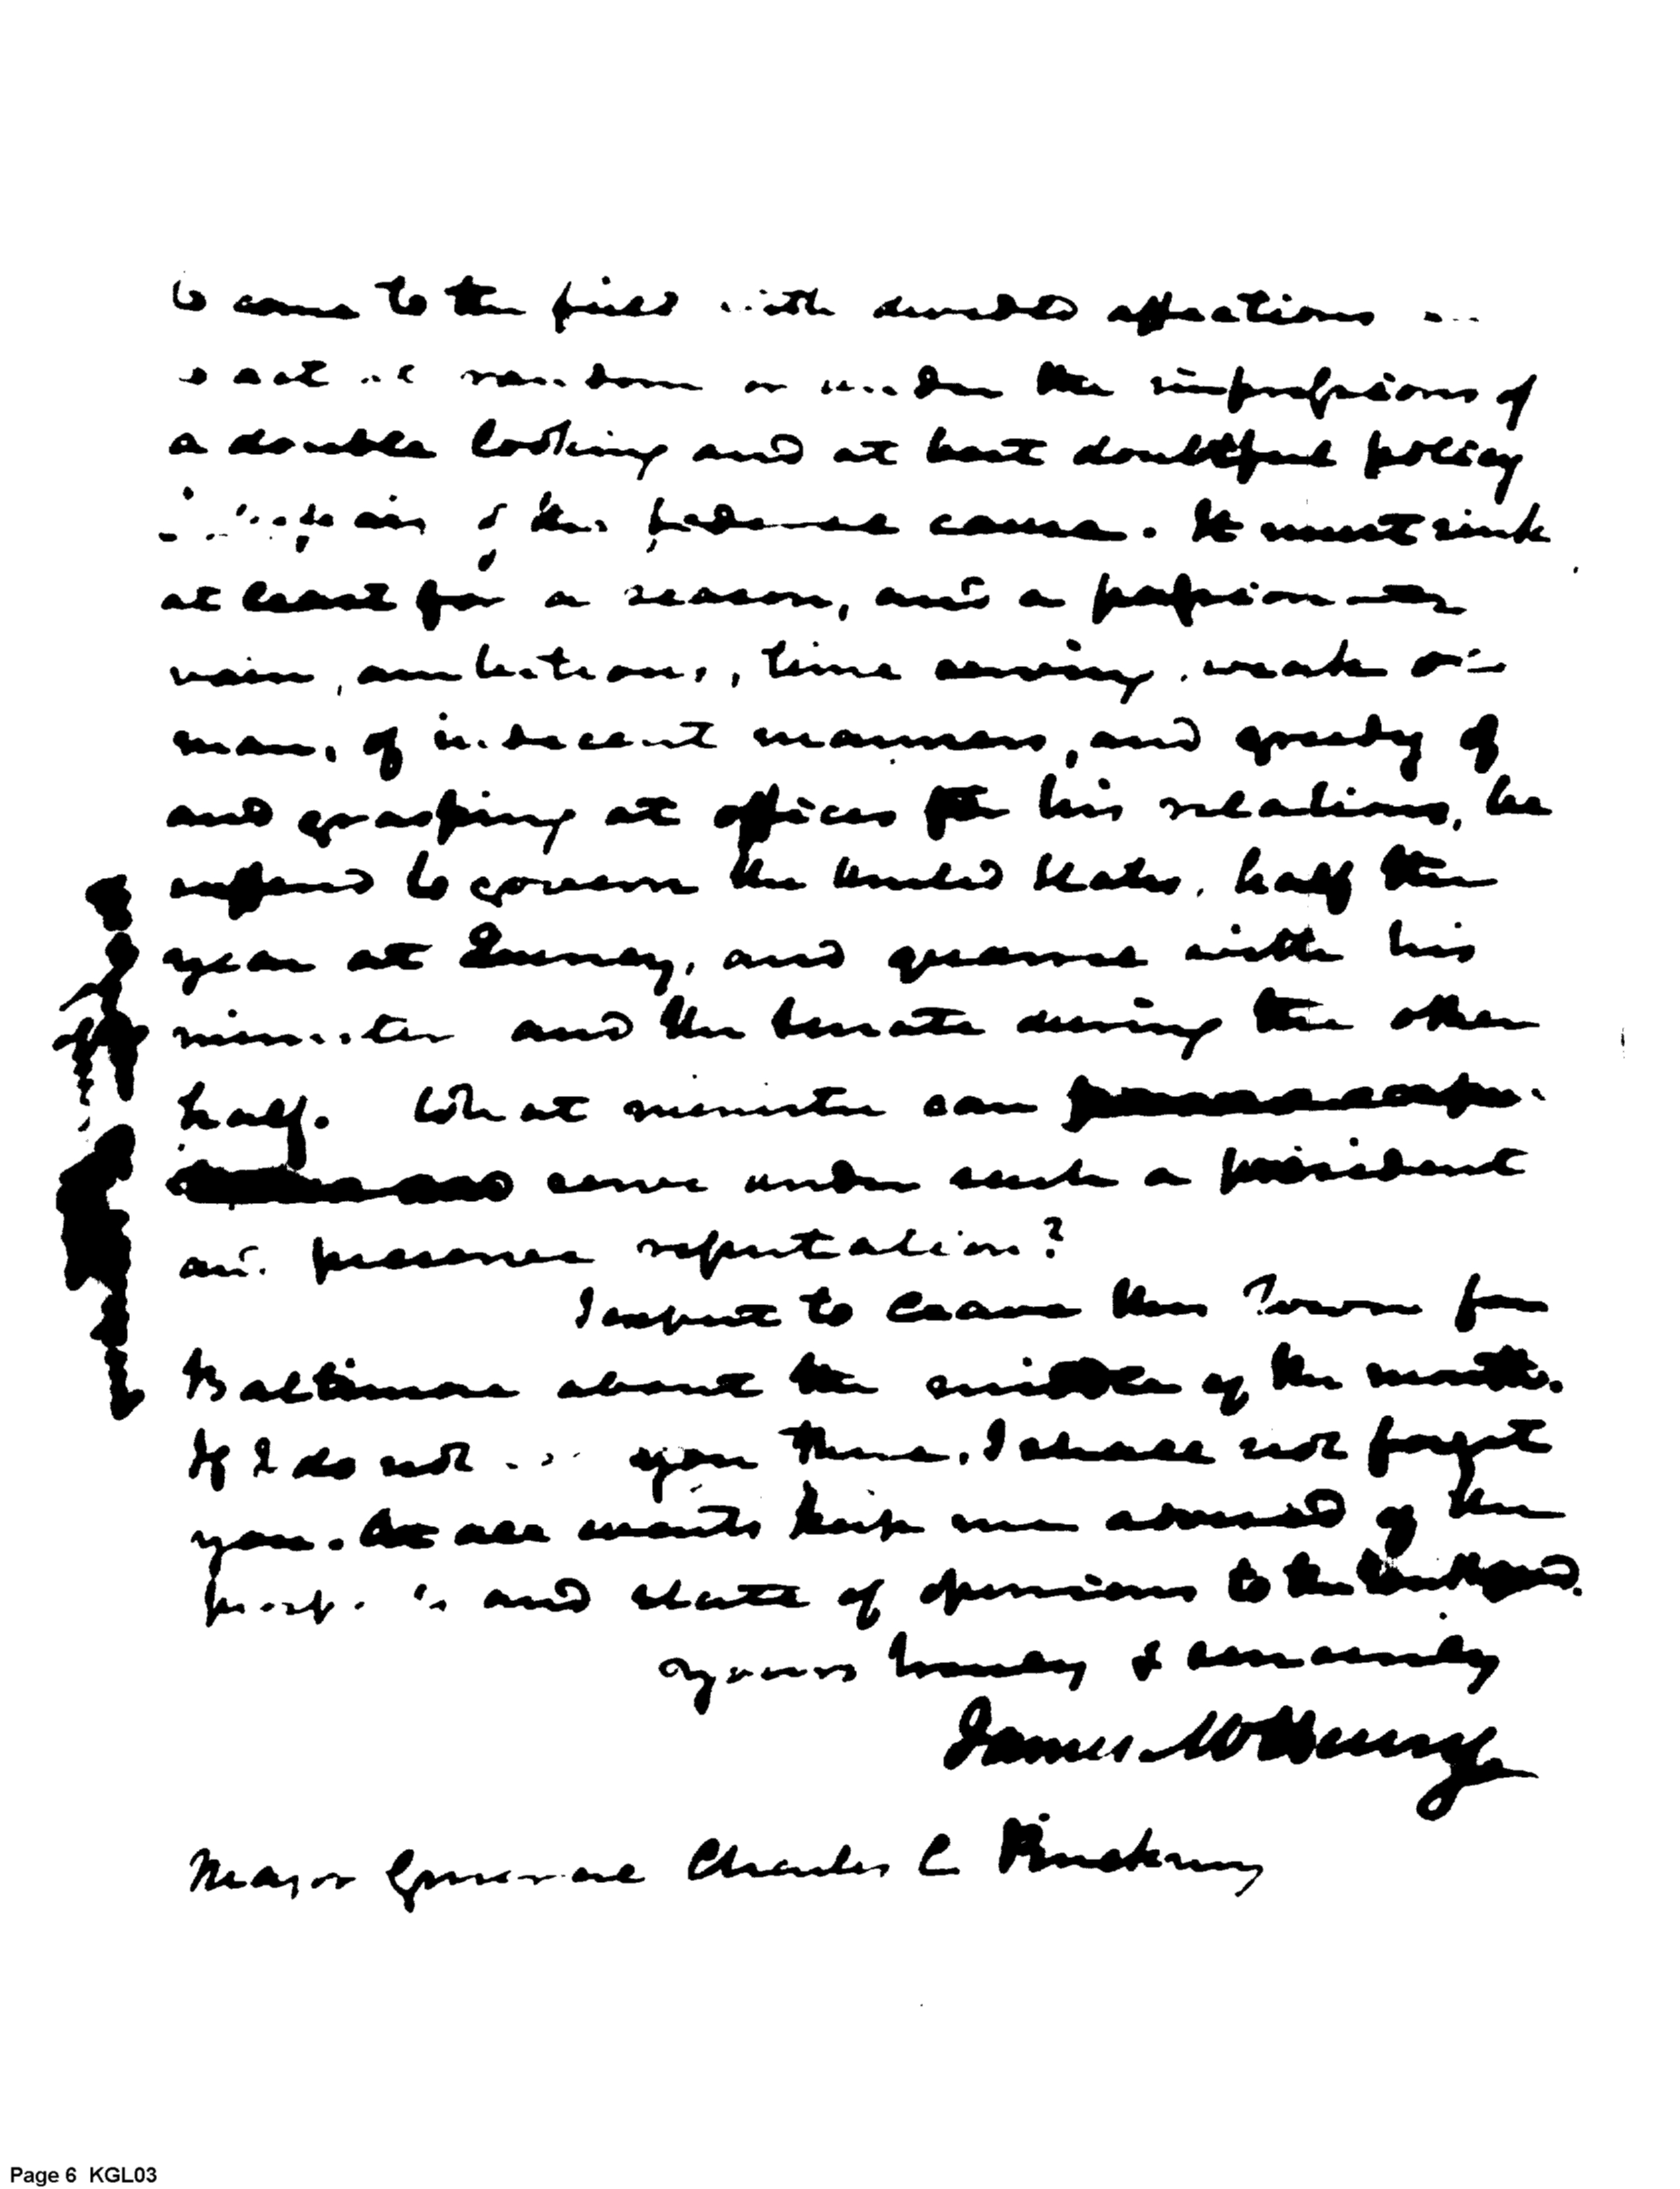 to come to the field with divided affections
not under the impressions of
a double looking and at best doubtful policy
of the federal cause. It must sink
at least for a season, and a passionate
vain, ambitious, time serving, weak old
man, of indecent manners, and greedy of
and grasping at offices for his relations, be
suffered to govern the United States, half the
year at Quincy, and quarrel with his
minister and the Senate during the other
half. What minister can
serve under such a president
and preserve reputation?
I expect to leave this Town for
Baltimore about the middle of the month.
If I do not see you there, I shall not forget
you. At all events keep me advised of the
and state of opinions to the
yours truly & sincerely
James McHenry
Major General Charles C Pinckney
Page 6 KGL03